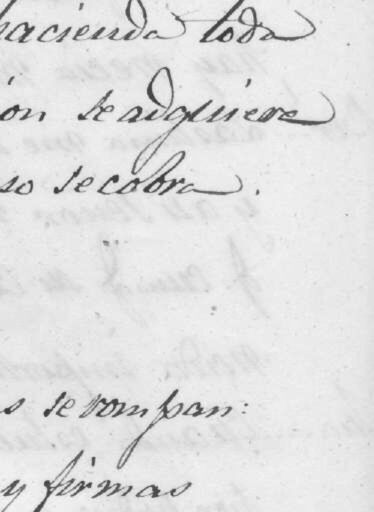 hacienda toda
ion se adquiere
so se cobra.
s se rompan:
y firmas